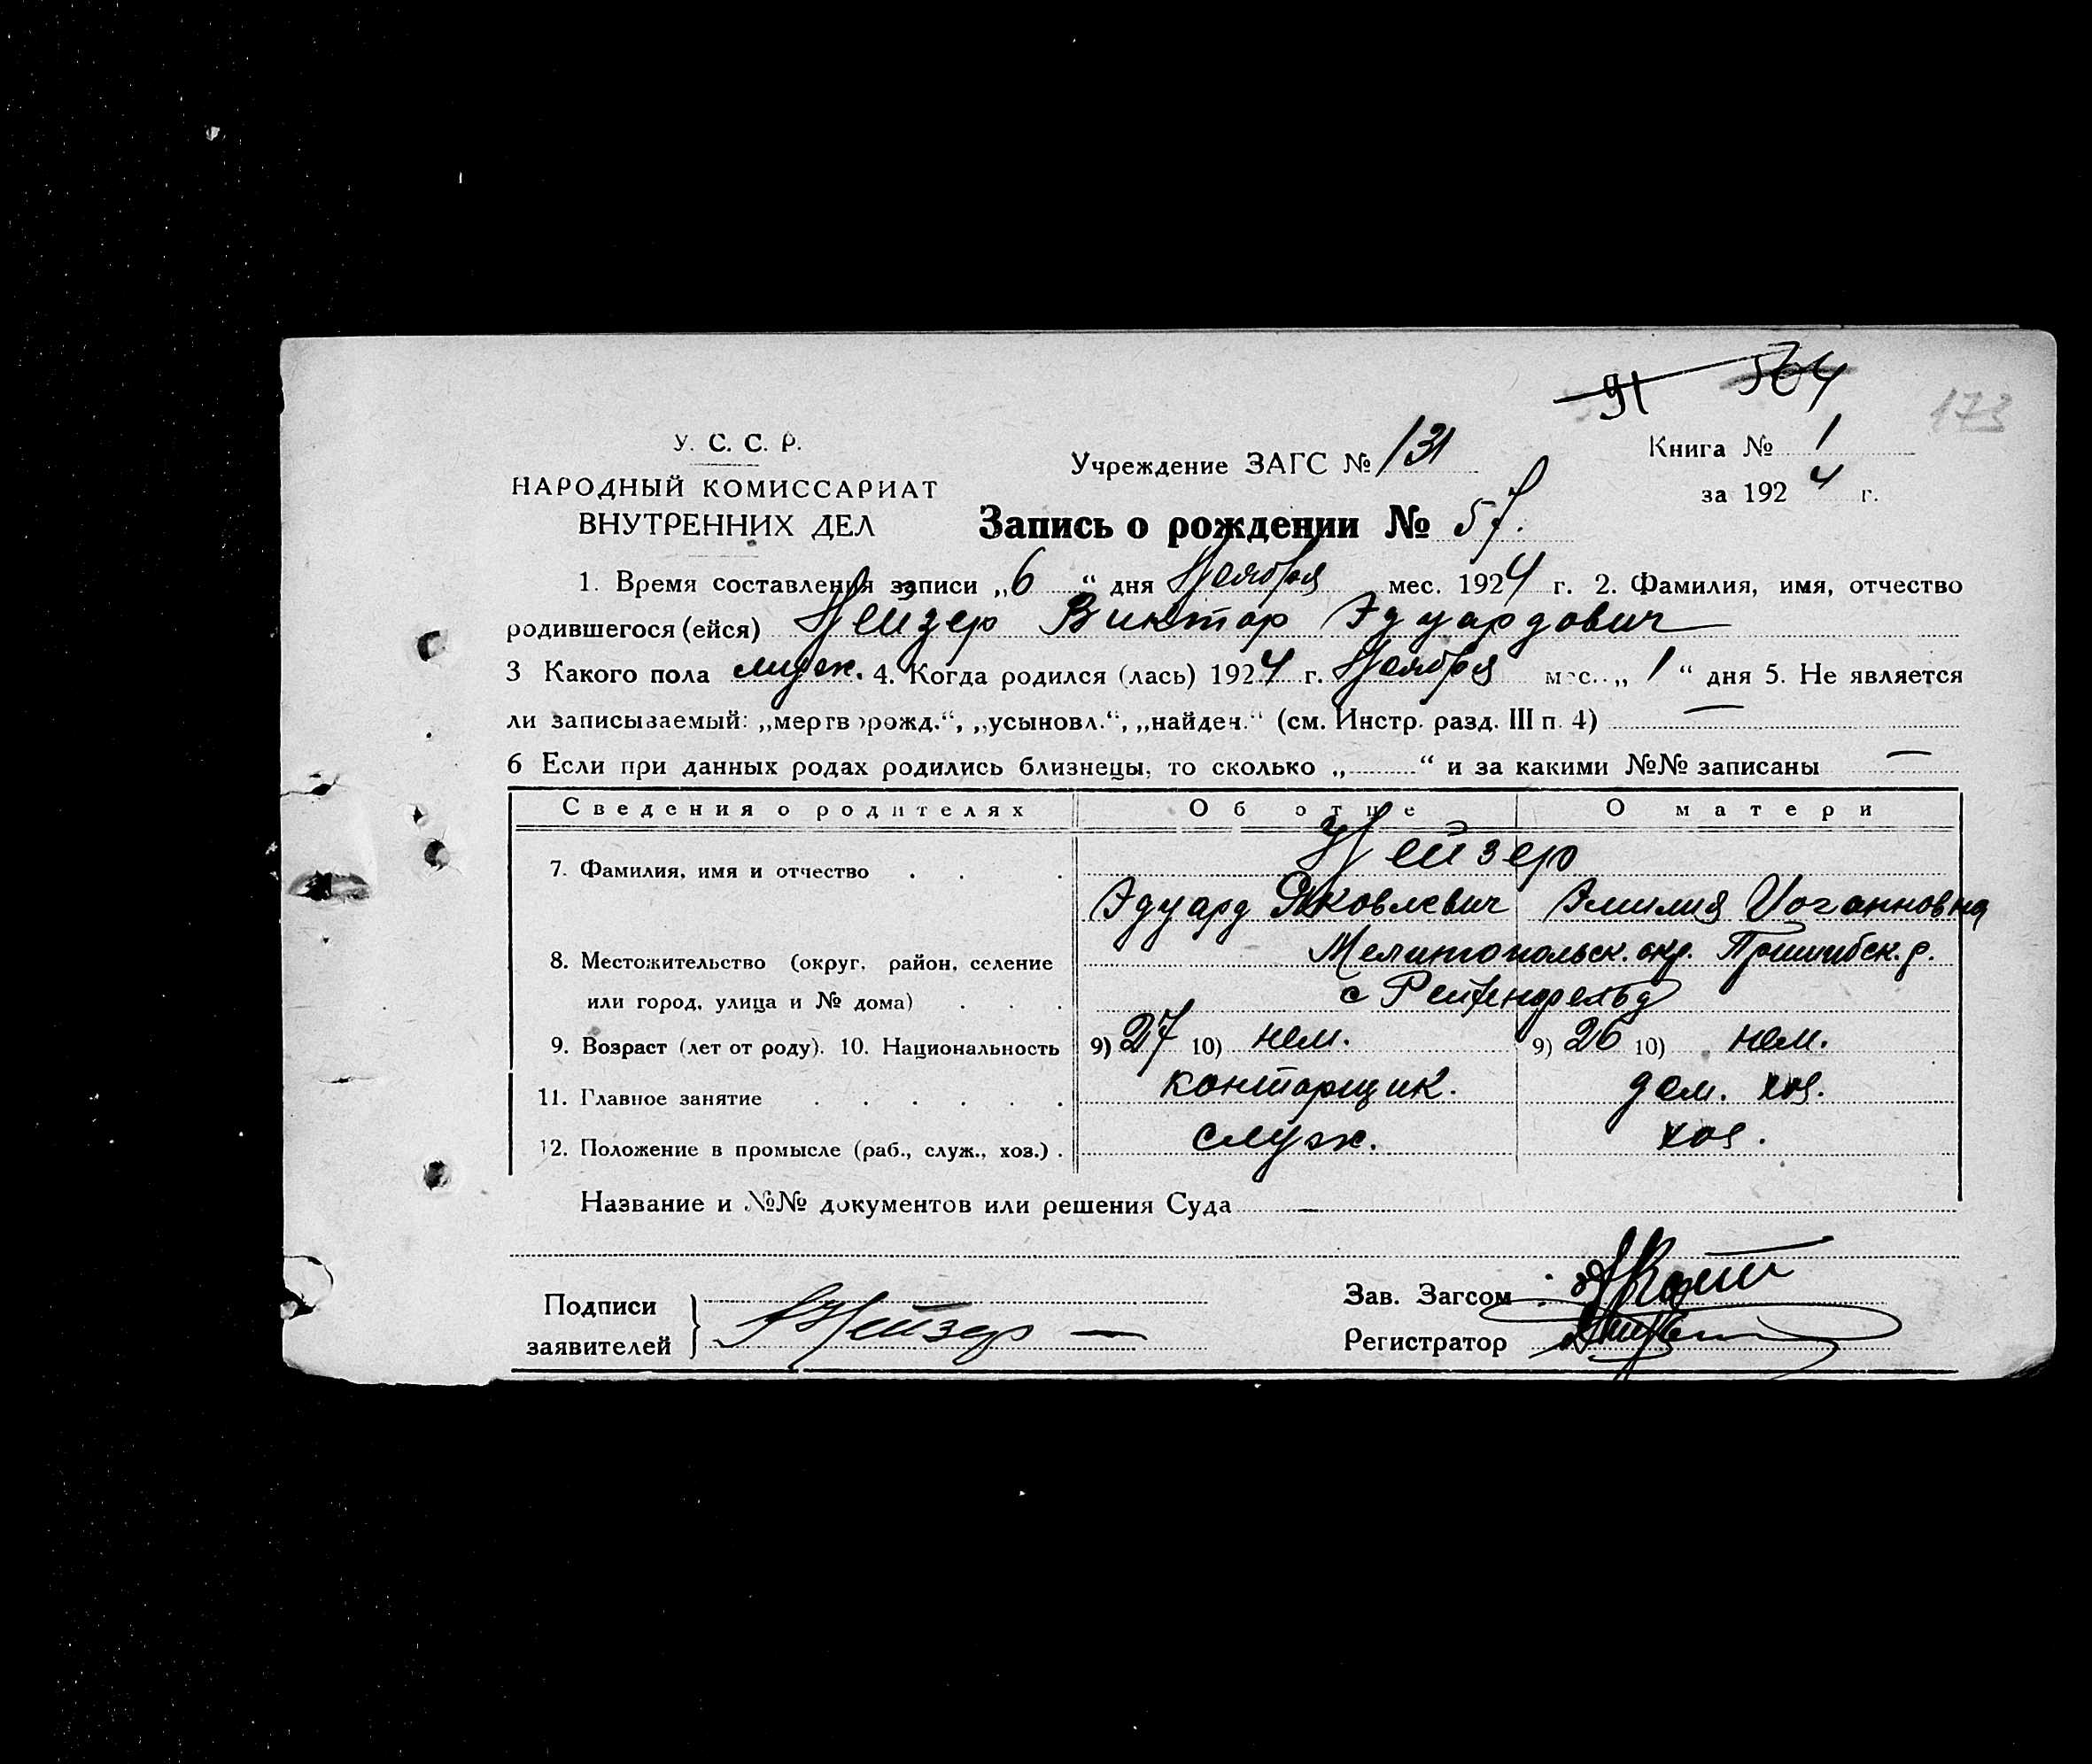 91 564
173
У. С. С. Р.
Учреждение ЗАГС № 131
Книга № 1
НАРОДНЫЙ КОМИССАРИАТ
за 1924 г.
ВНУТРЕННИХ ДЕЛ
Запись о рождении № 57.
1. Время составления записи „6“ дня Ноября мес. 1924 г. 2. Фамилия, имя, отчество
родившегося (ейся) Нейзер Виктор Эдуардович
3 Какого пола муж. 4. Когда родился (лась) 1924 г. Ноября мес. „1“ дня 5. Не является
ли записываемый: „мертворожд.“, „усыновл.“, „найден.“ (см. Инстр. разд. III п. 4) —
6 Если при данных родах родились близнецы, то сколько „ “ и за какими №№ записаны —
Сведения о родителях Об отце О матери
7. Фамилия, имя и отчество . . . Нейзер
Эдуард Яковлевич Эмилия Иоганновна
8. Местожительство (округ, район, селение Мелитопольск. окр. Пришибск. р.
или город, улица и № дома) . . . с Рейхенфельд
9. Возраст (лет от роду). 10. Национальность 9) 27 10) нем. 9) 26 10) нем.
11. Главное занятие . . . . . . конторщик. дом. хоз.
12. Положение в промысле (раб., служ., хоз.) . служ. хоз.
Название и №№ документов или решения Суда —
Подписи
заявителей
Нейзер —
Зав. Загсом
Регистратор